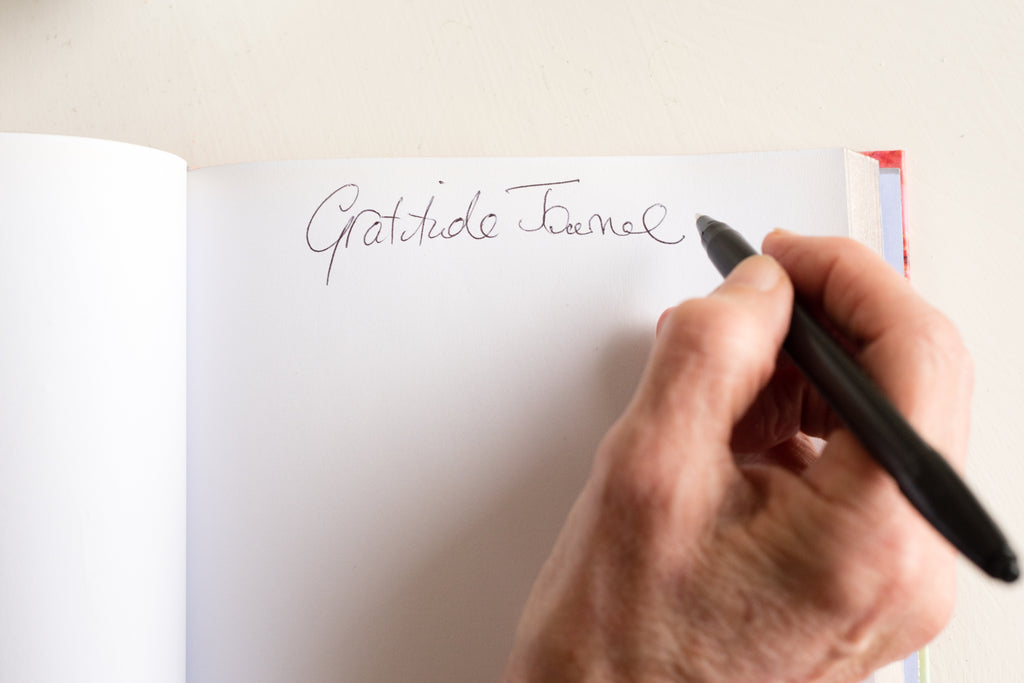 Gratitude Journel